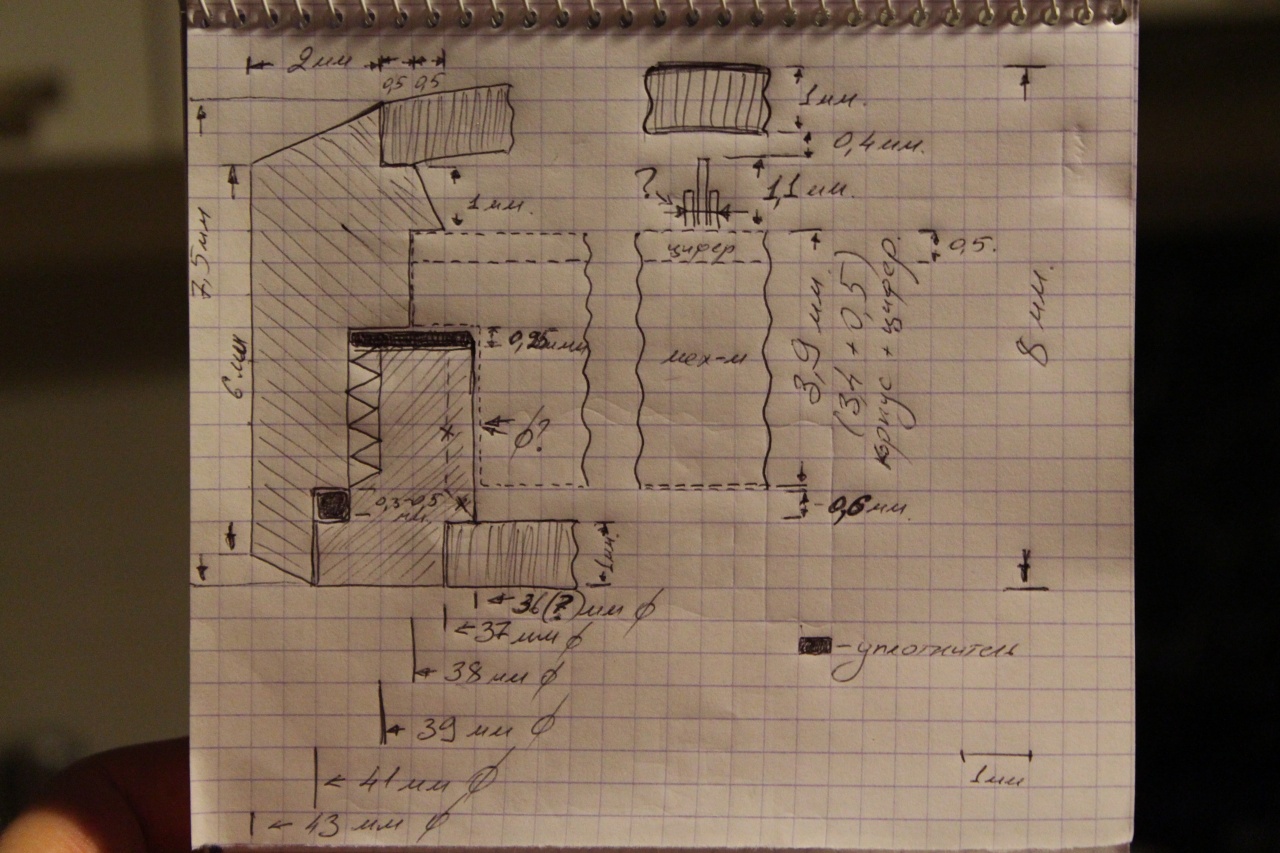 2мм
0,5 0,5
1мм.
0,4мм.
?
1,1мм.
1мм.
7,5мм
цифер
0,5.
3,9 мм
(3,4 + 0,5)
корпус + цифер.
8 мм.
0,25мм
мех-м
6 мм
ф?
0,3-0,5
мм
0,6мм.
1мм.
36(?)мм ф
37мм ф
38 мм ф
39 мм ф
41 мм ф
43 мм ф
- уплотнитель
1мм